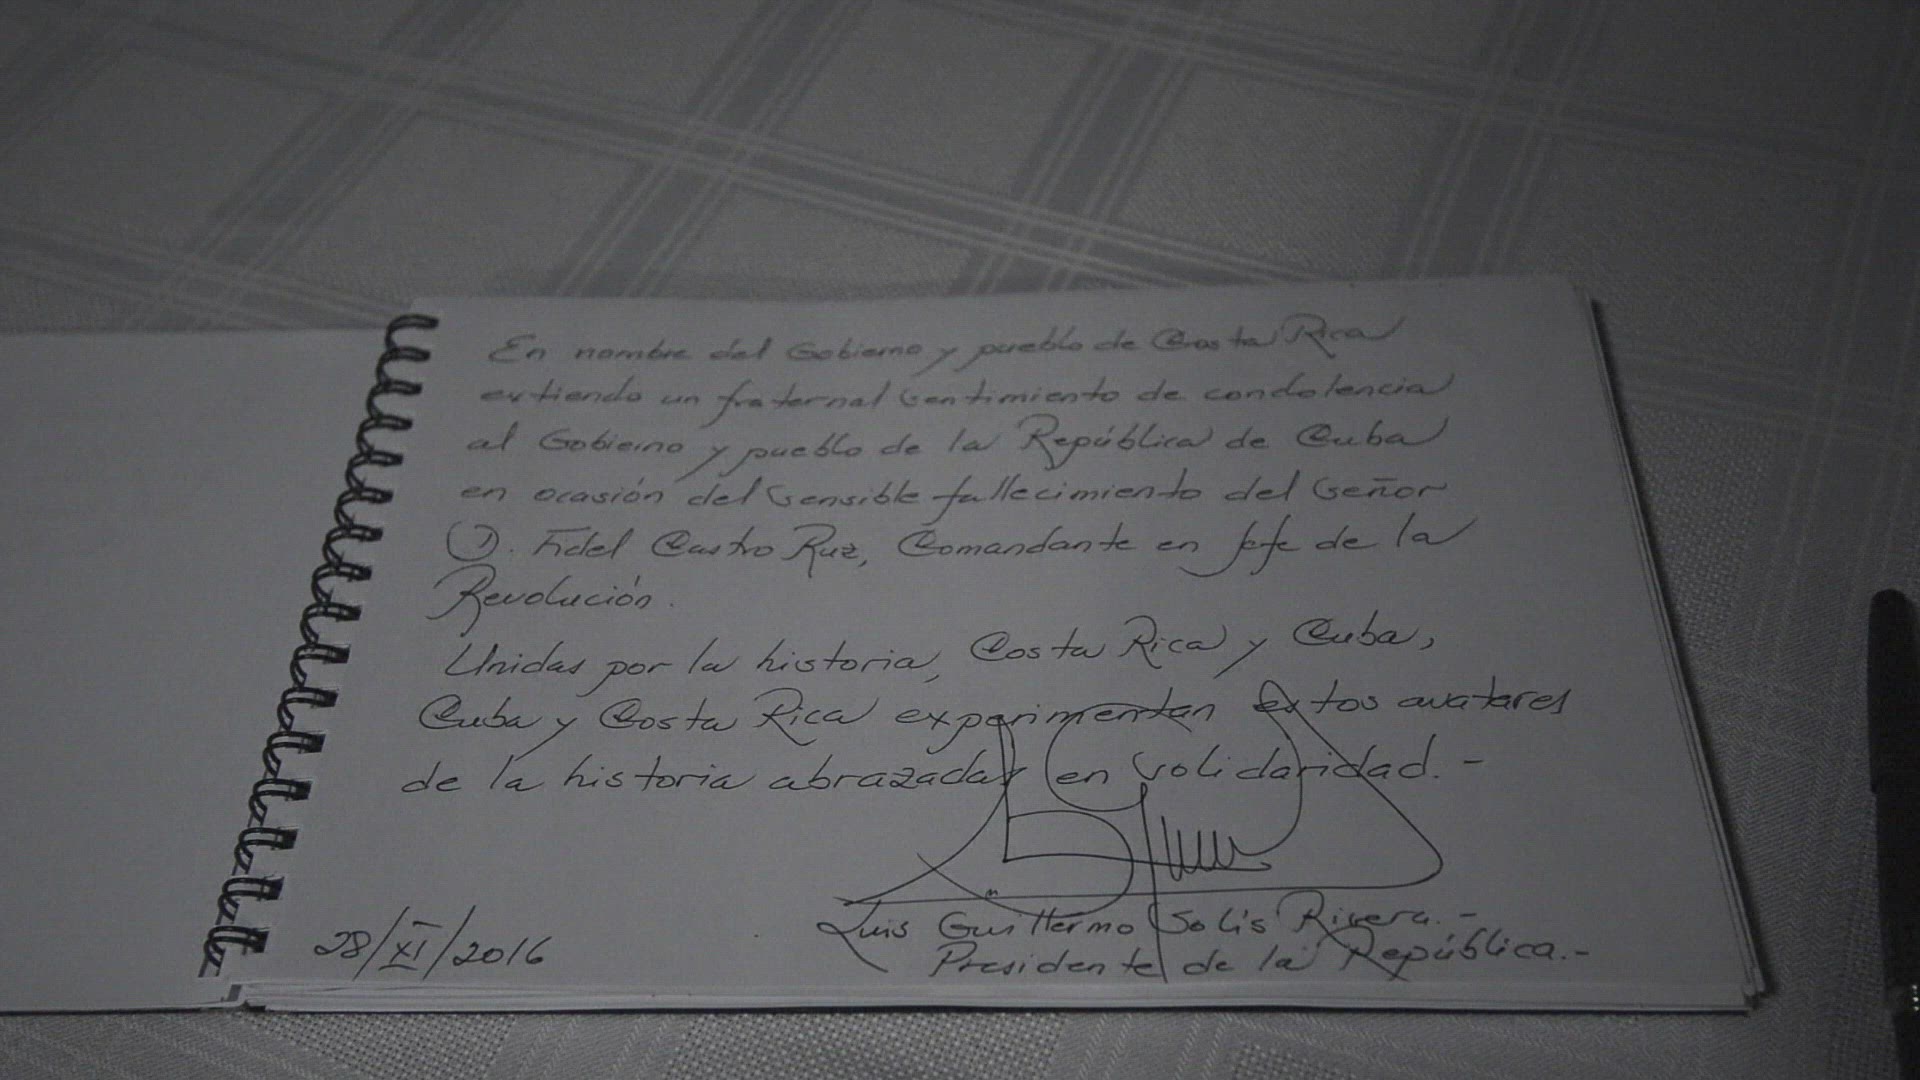 En nombre del Gobierno y pueblo de Costa Rica
extiendo un fraternal sentimiento de condolencia
al Gobierno y pueblo de la República de Cuba
en ocasión del sensible fallecimiento del Señor
D. Fidel Castro Ruz, Comandante en Jefe de la
Revolución.
Unidas por la historia, Costa Rica y Cuba,
Cuba y Costa Rica experimentan estos avatares
de la historia abrazadas en solidaridad.-
Luis Guillermo Solís Rivera.-
Presidente de la República.-
28/XI/2016